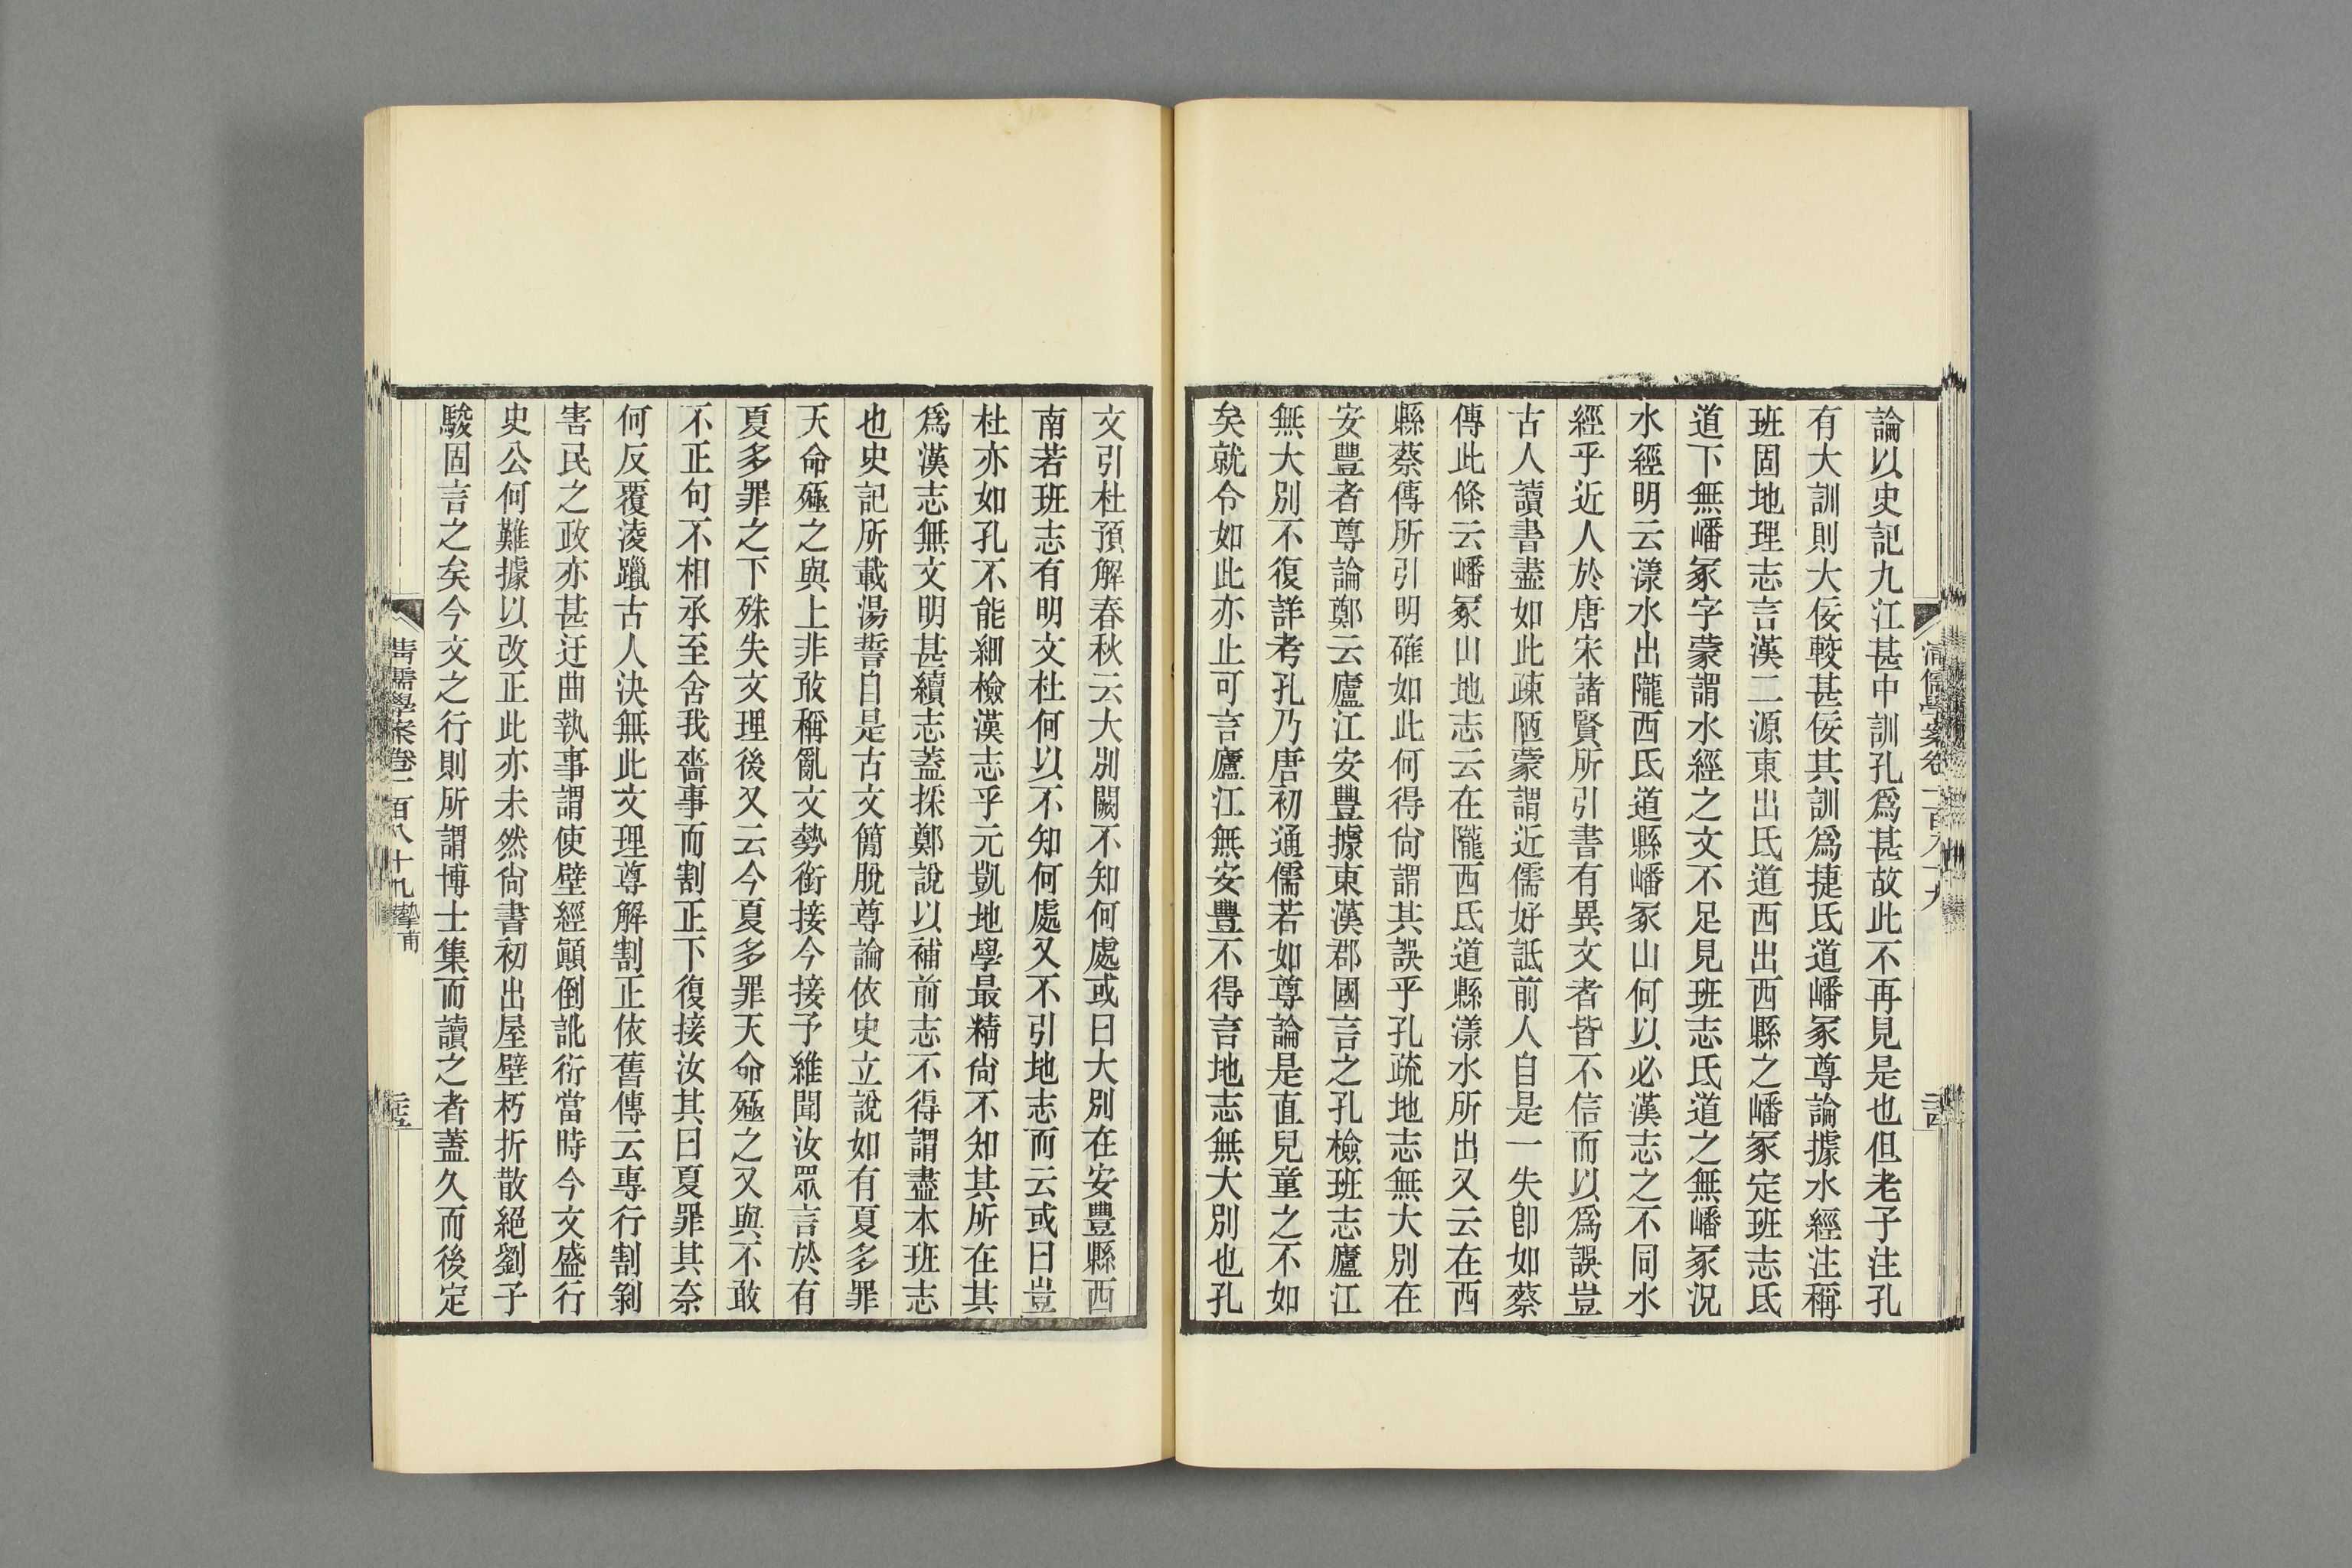 論以史記九江甚中訓孔爲甚故此不再見是也但老子注孔
有大訓則大佞較甚佞其訓爲捷氐道嶓冢尊論據水經注稱
班固地理志言漢二源東出氐道西出西縣之嶓冢定班志氐
道下無嶓冢字蒙謂水經之文不足見班志氐道之無嶓冢況
水經明云漾水出隴西氐道縣嶓冢山何以必漢志之不同水
經乎近人於唐宋諸賢所引書有異文者皆不信而以爲誤豈
古人讀書盡如此疎陋蒙謂近儒好詆前人自是一失卽如蔡
傳此條云嶓冢山地志云在隴西氐道縣漾水所出又云在西
縣蔡傳所引明確如此何得尙謂其誤乎孔疏地志無大別在
安豐者尊論鄭云廬江安豐據東漢郡國言之孔檢班志廬江
無大別不復詳考孔乃唐初通儒若如尊論是直兒童之不如
矣就令如此亦止可言廬江無安豐不得言地志無大別也孔
文引杜預解春秋云大別闕不知何處或曰大別在安豐縣西
南若班志有明文杜何以不知何處又不引地志而云或曰豈
杜亦如孔不能細檢漢志乎元凱地學最精尙不知其所在其
爲漢志無文明甚續志蓋採鄭說以補前志不得謂盡本班志
也史記所載湯誓自是古文簡脫尊論依史立說如有夏多罪
天命殛之與上非敢稱亂文勢銜接今接予維聞汝眾言於有
夏多罪之下殊失文理後又云今夏多罪天命殛之又與不敢
不正句不相承至舍我嗇事而割正下復接汝其曰夏罪其奈
何反覆淩躐古人決無此文理尊解割正依舊傳云專行割剝
害民之政亦甚迂曲執事謂使壁經顚倒訛衍當時今文盛行
史公何難據以改正此亦未然尙書初出屋壁朽折散絕劉子
駿固言之矣今文之行則所謂博士集而讀之者蓋久而後定
清儒學案卷一百八十九 摯甫